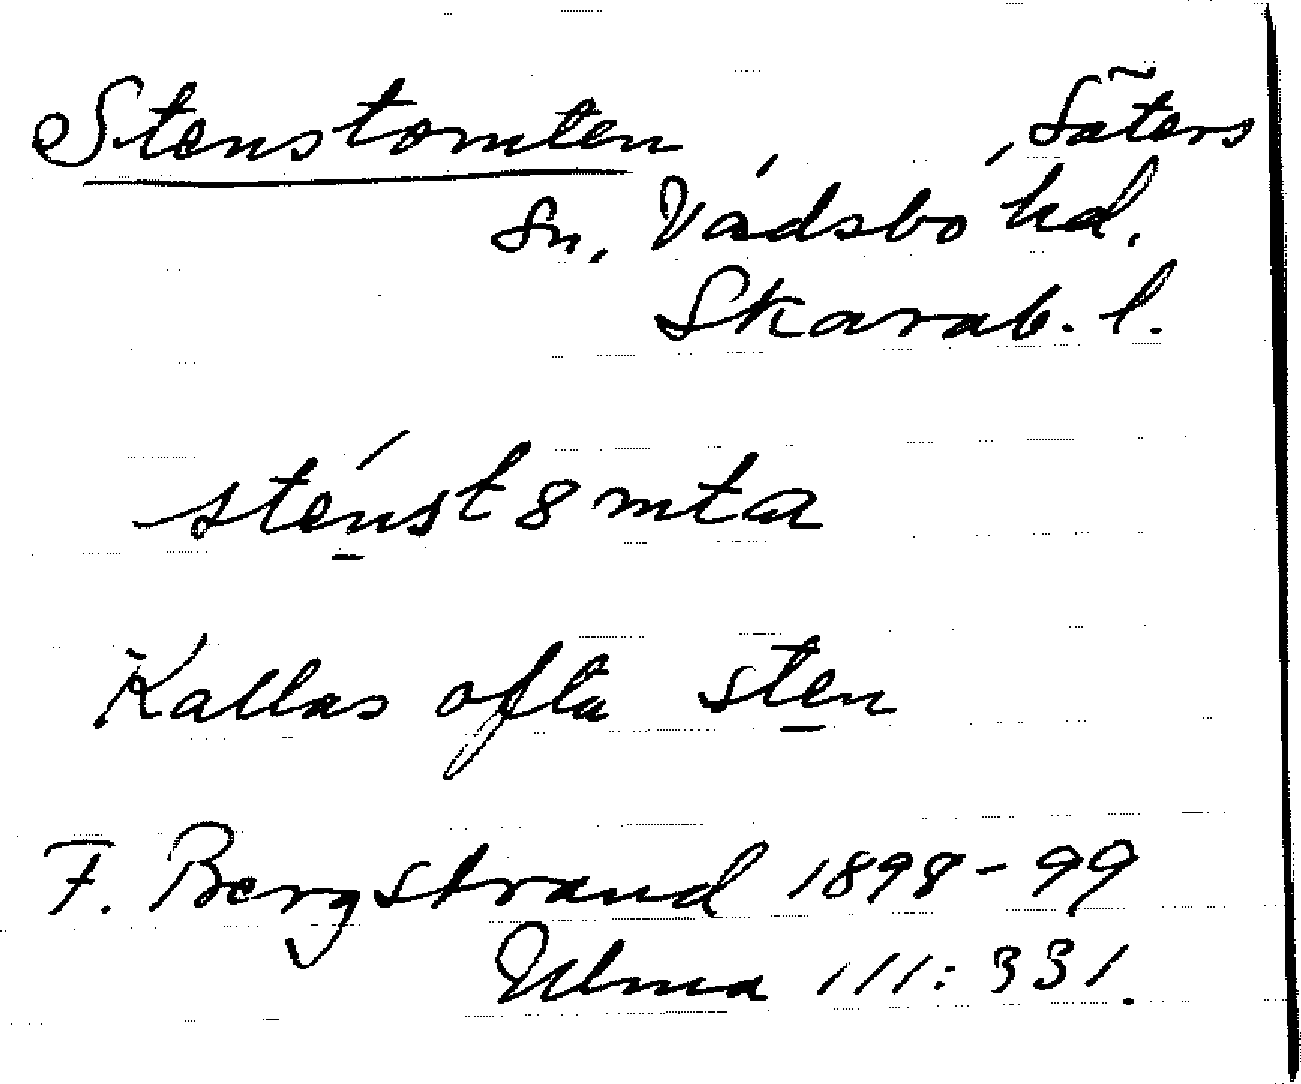 Stenstomten, Säters
Sn. Vadsbo hd.
Skarab. l.
stenst8mta
Kallas ofta sten
F. Bergstrand 1898-99
Ulma 111:331.